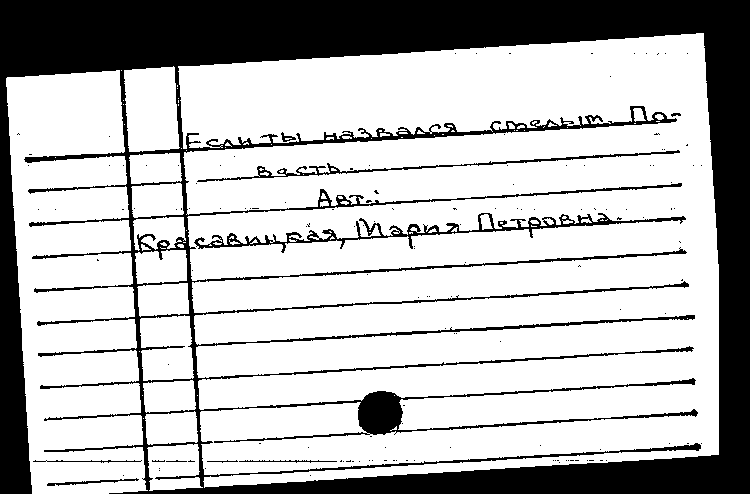 Если ты назвался смелым. По-
весть.
Авт.:
Красавицкая, Мария Петровна.